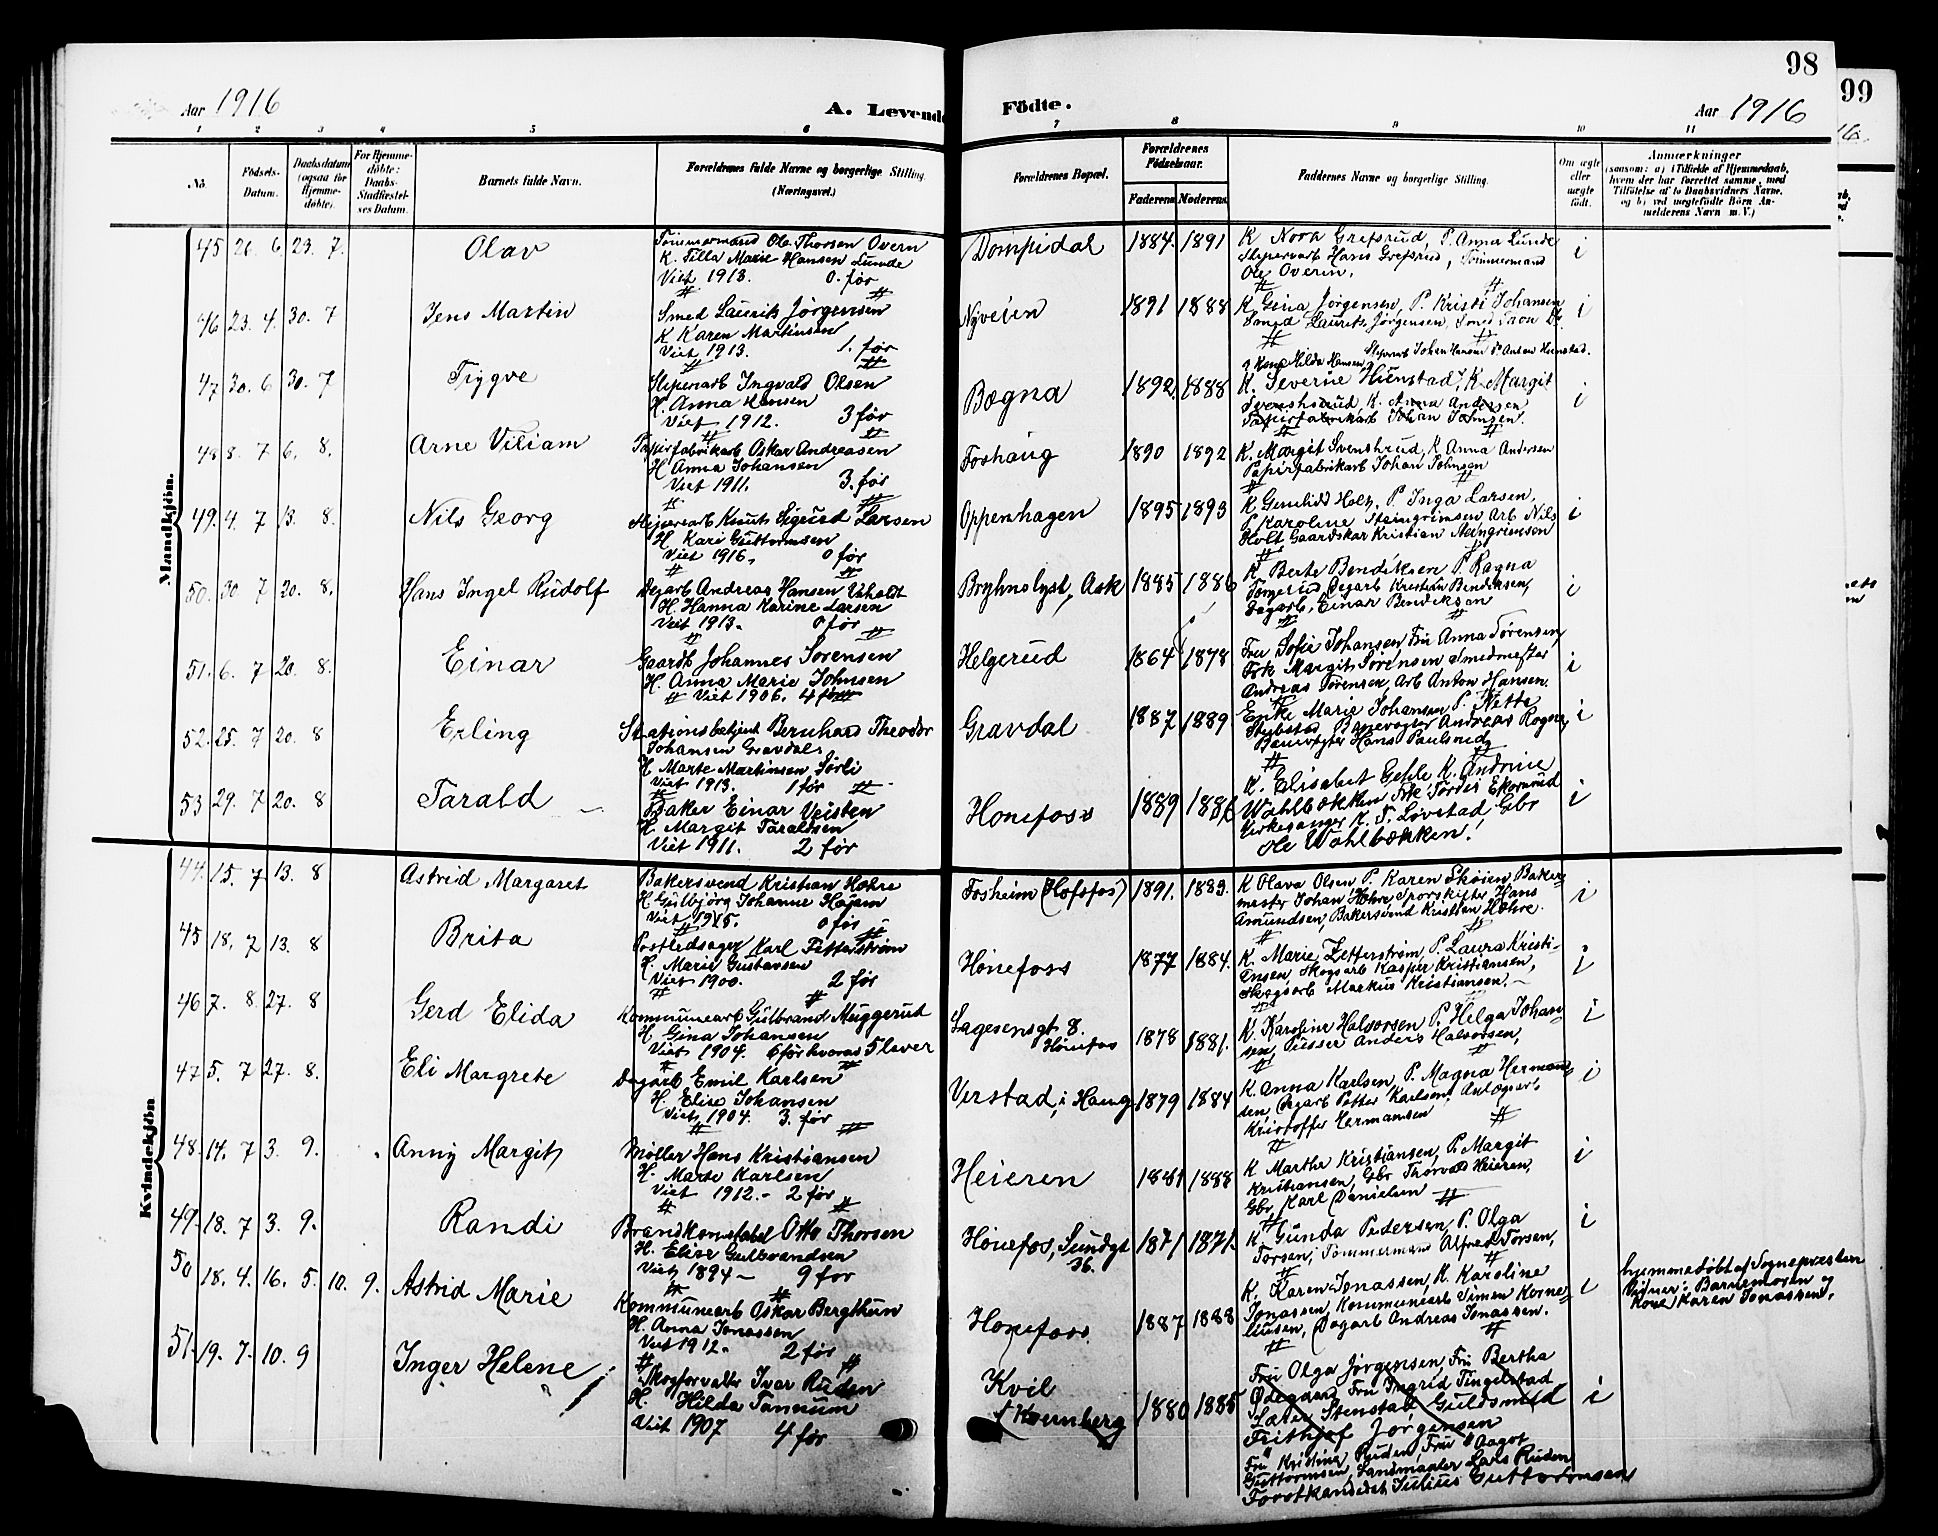 98
99
Aar 1916
A. Levende Födte.
Aar 1916
1 2 3 4 5 6 7 8 9 10 11
No. Födsels-Datum. Daabsdatum (ogsaa for Hjemmedöbte). For Hjemmedöbte: Daabs-Stadfæstelses Datum. Barnets fulde Navn. Forældrenes fulde Navne og borgerlige Stilling. (Næringsvei.) Forældrenes Bopæl. Forældrenes Födselsaar. Faderens Moderens Faddernes Navne og borgerlige Stilling. Om ægte eller uægte födt. Anmærkninger
Mandkjön.
45 6. 23. 7. Olav
Tømmermand Ole Thorsen Overn
K. Tilla Marie Hansen Lunde
Viet 1913. 0. før
1884. 1891
K Nora Grefsrud, P. Anna Lunde
Sliperarb Hans Grefsrud, Tømmermand
Ole Overn.
i
46 23. 4. 30. 7 Jens Martin
Smed Laurits Jørgensen
K Karen Martinsen
Viet 1913. 1. før
Nyveien 1891 1888
K Gina Jørgensen, P. Kristi Johansen
Smed Laurits Jørgensen, Smed
i
47 30. 6 30. 7 Trygve
Sliperarb Ingvald Olsen
H. Anna Hansen
Viet 1912. 3 før
Bægna 1892 1888
K. Severine Hienstad, K. Margit
Svenshrud, K. Anna Andersen
Papirfabrikarb Johan Johnsen.
i
48 8. 7 6. 8. Arne Viliam
Papirfabrikarb Oskar Andreasen
H Anna Johansen
Viet 1911. 3. før
Foshaug 1890 1892
K. Margit Svenshrud, K Anna Andersen
Papirfabrikarb Johan Johnsen
49. 4. 7 13. 8. Nils Georg
Knut Sigurd Larsen
H. Kari Guttormsen
Viet 1916. 0 før
Oppenhagen 1895 1893
K Gunhild Holt, P. Inga Larsen,
P Karoline Steingrimsen Arb Nils
Holt Gaardskar Kristian Steingrimsen
i
50. 30. 7 20. 8. Hans Ingel Rudolf
Dagarb Andreas Hansen
H. Hanna Karine Larsen
Viet 1913. 0 før
Bryhnslyst, Ask 1885 1886
K Berte Bendiksen P. Ragna
Dagarb Kristian Bendiksen,
Dagarb, Einar Bendiksen
i
51. 6. 7 20. 8. Einar
Gaardb Johannes Sørensen
H. Anna Marie Johnsen
Viet 1906. 4 før
Helgerud 1864 1878
Fru Sofie Johansen, Fru Anna Sørensen,
Frk Margit Sørensen Smedmester
Andreas Sørensen, Arb Anton Hansen.
i
52. 25. 7 20. 8 Erling
Stationsbetjent Bernhard Theodor
Johansen Gravdal.
H Marte Martinsen Sørli
Viet 1913. 1 før
Gravdal 1887 1889
Enke Marie Johansen P. Nette
Banevogter Andreas Rogne,
Banevogter Hans Paulsrud
i
53 29. 7 20. 8 Tarald
Baker Einar Veisten
H. Margit Taraldsen
Viet 1911. 2 før
Hønefoss 1889 1886
K. Elisabet Gehle K. Andrine
Wahlbækken, Frk Tordis Ekornrud
Kirkesanger K. T. Løvstad Gbr
Ole Wahlbækken.
i
Kvindekjön
44. 15. 7 13. 8 Astrid Margaret
Bakersvend Kristian Hæhre
H Gulbjørg Johanne Hajem
Viet 1915. 0 før
Fosheim (Hofsfos) 1891. 1883.
K Olava Olsen P. Karen Skøien, Baker-
mester Johan Hæhre, Sporskifter Hans
Amundsen, Bakersvend Kristian Hæhre.
i
45 18. 7 13. 8 Brita
Karl Zetterstrøm
H. Marie Gustavsen
Viet 1900. 2 før
Hønefoss 1877 1884.
K. Marie Zetterstrøm, P. Laura Kristi-
ansen, Skogsarb Kasper Kristiansen,
Skogsarb Markus Kristiansen.
i
46 7. 8. 27. 8 Gerd Elida
Kommunearb Gulbrand Muggerud
H Gina Johansen
Viet 1904. 6 før hvoraf 5 lever
8. Hønefos 1878 1881.
K. Karoline Halvorsen P. Helga Johan-
sen, Pusser Anders Halvorsen,
i
47 5. 7 27. 8. Eli Margrete
Dagarb Emil Karlsen
H. Elise Johansen
Viet 1904. 3. før
Verstad, i Haug 1879 1884
K. Anna Karlsen, P. Magna Herman-
sen, Dagarb Petter Karlsen, Anlægsarb
Kristoffer Hermansen
i
48. 14. 7 3. 9. Anny Margit
Møller Hans Kristiansen
H. Marte Karlsen
Viet 1912. 2 før
Heieren 1881 1888
K Martha Kristiansen, P. Margit
Kristiansen, Gbr Thorvald Heieren,
Gbr, Karl Danielsen
i
49. 18. 7 3. 9. Randi
Brandkonstabel Otto Thorsen
H. Elise Gulbrandsen
Viet 1894 9 før
Hønefos, Sundgt 36. 1871 1871.
K Gunda Pedersen, P. Olga
Torsen, Tømmermand Alfred Torsen,
i
50 18. 4. 16. 5. 10. 9. Astrid Marie
Kommunearb Oskar Bergthun
H. Anna Jonassen
Viet 1912. 2 før
Hønefoss. 1887 1888
K. Karen Jonassen, K. Karoline
Jonassen, Kommunearb Simen Korne-
liusen, Dagarb Andreas Jonassen.
i
hjemmedøbt af Sognepresten
Vidner: Barnemoren og
Kone Karen Jonassen.
51. 19. 7. 10. 9 Inger Helene
Skogforvalter Ivar Ruden
H. Hilda Tannum
Viet 1907 4 før
Kvil
1880 1885
Fru Olga Jørgensen, Fru Bertha
Ødegaard Fru Ingrid Tingelstad
Stenstad Guldsmed
Frithjof Jørgensen
Fru Kristine Ruden, Fru Aagot
Guttormsen, Landmaaler Lars Ruden
Forstkandidat Julius Guttormsen
i